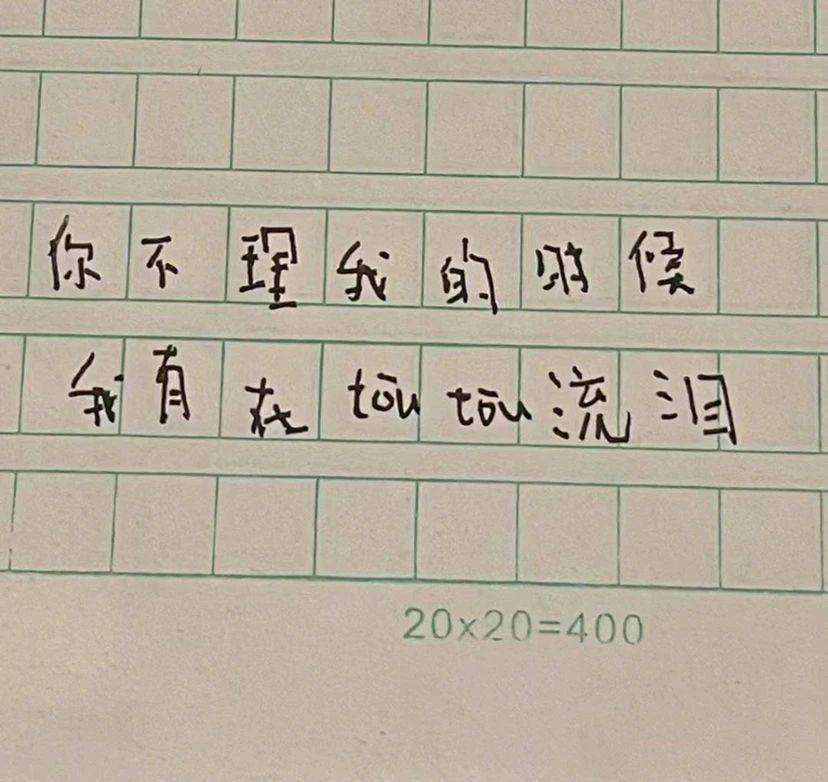 你不理我的时候
我有在tōu tōu流泪
20×20=400